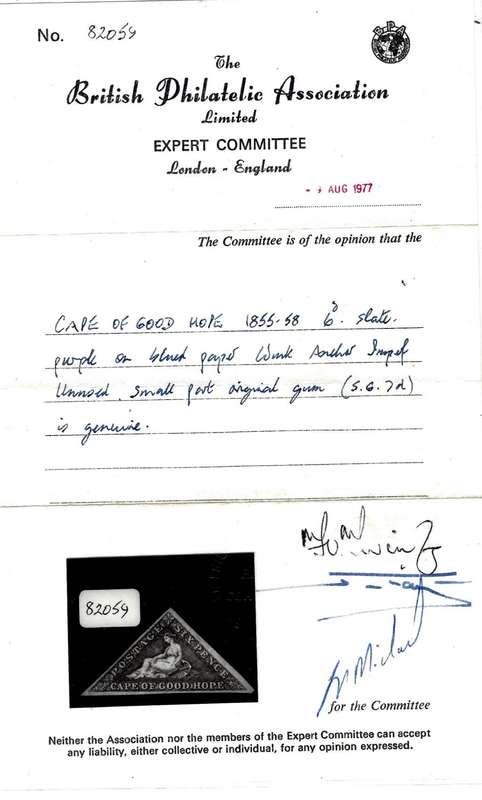 No. 82059
BPA
The
British Philatelic Association
Limited
EXPERT COMMITTEE
London - England
AUG 1977
The Committee is of the opinion that the
CAPE OF GOOD HOPE 1855-58 6d. slate-
purple on blued paper Wmk Anchor Imperf
Unused. Small part original gum (S.G. 7d)
is genuine.
82059
POSTAGE SIX PENCE
CAPE OF GOOD HOPE
for the Committee
Neither the Association nor the members of the Expert Committee can accept
any liability, either collective or individual, for any opinion expressed.